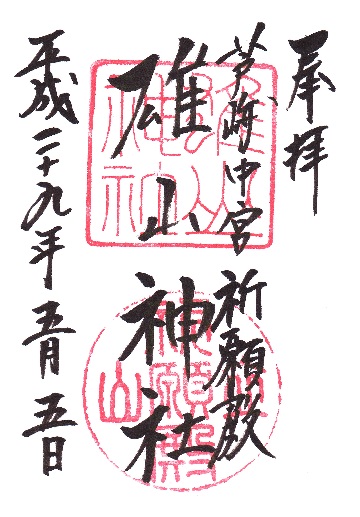 奉拝
芦峅中宮
祈願殿
雄山
神社
平成二十九年五月五日